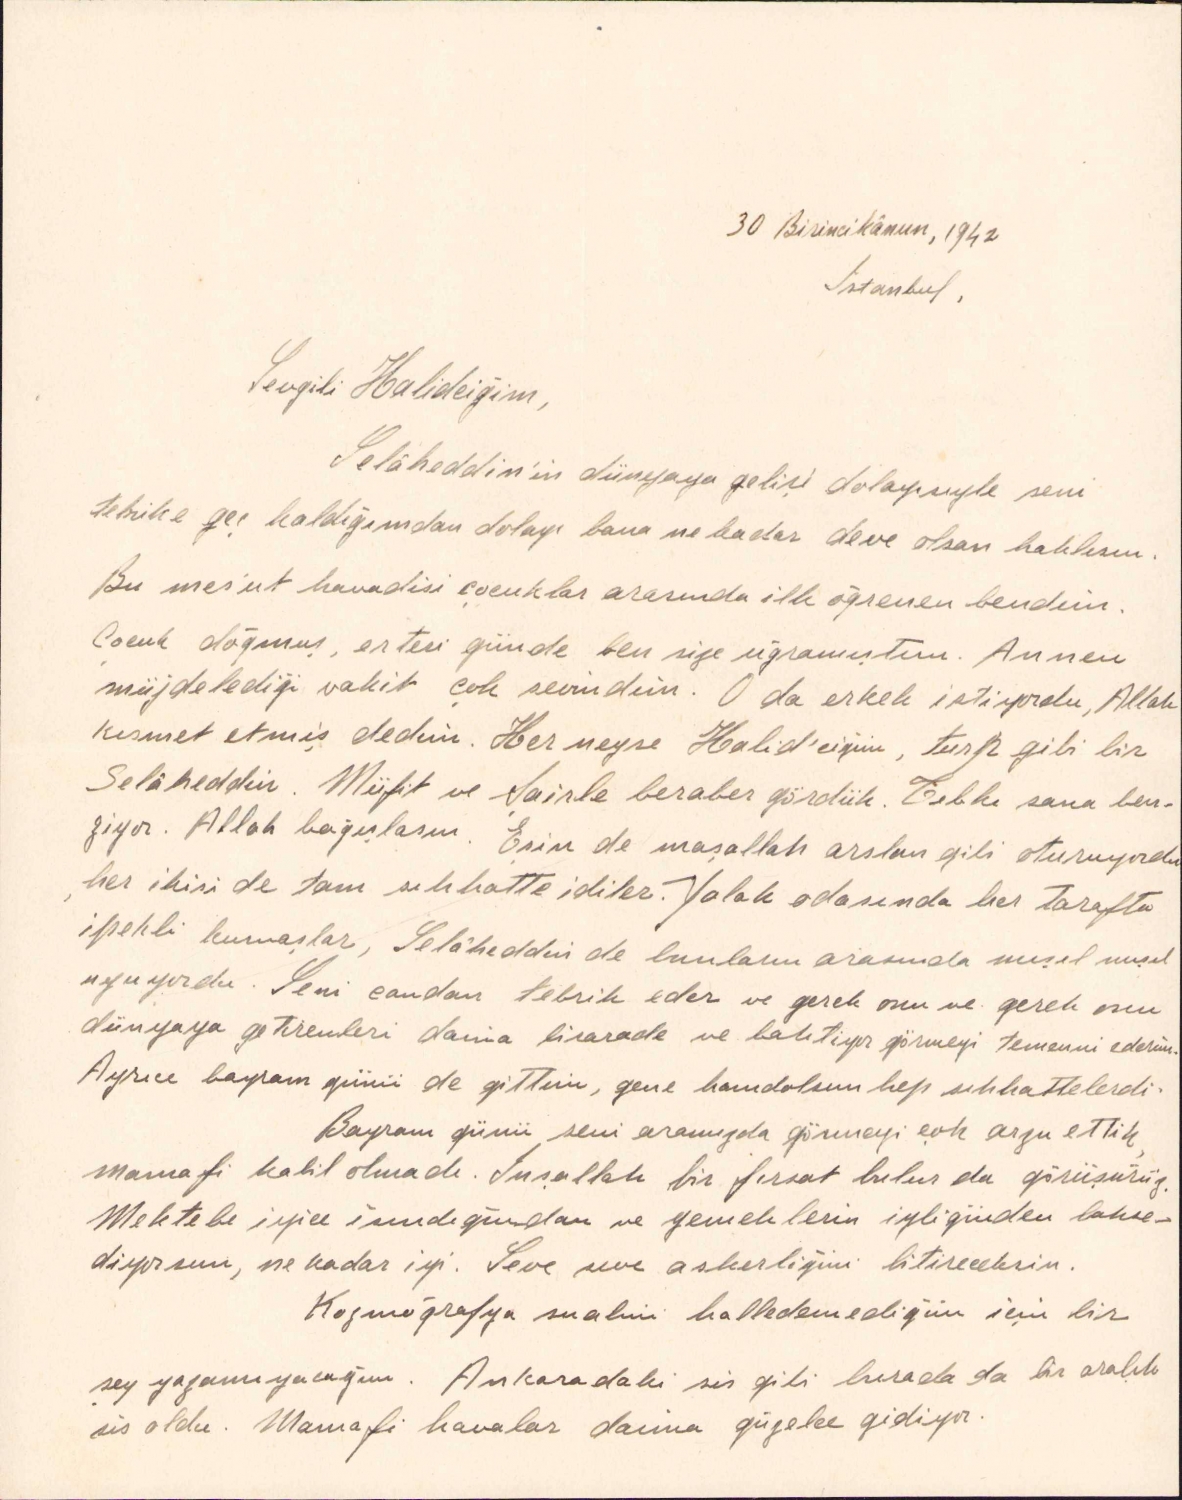 30 Birincikânun, 1942
İstanbul,
Sevgili Halidciğim,
Selâheddin'in dünyaya gelişi dolayısıyle seni
tebrike geç kaldığımdan dolayı bana ne kadar deve olsan haklısın.
Bu mes'ut havadisi çocuklar arasında ilk öğrenen bendim.
Çocuk doğmuş, ertesi günde ben size uğramıştım. Annen
müjdelediği vakit çok sevindim. O da erkek istiyordu, Allah
kısmet etmiş dedim. Her neyse Halid'ciğim, turp gibi bir
Selâheddin. Müfit ve Sairle beraber gördük. Tıbkı sana ben-
ziyor. Allah bağışlasın. Eşin de maşallah arslan gibi oturuyordu
, her ikisi de tam sıhhatte idiler. Yatak odasında her tarafta
ipekli kumaşlar, Selâheddin de bunların arasında mışıl mışıl
uyuyordu. Seni candan tebrik eder ve gerek onu ve gerek onu
dünyaya getirenleri daima ve bahtiyar görmeyi temenni ederim.
Ayrıce bayram günü de gittim, gene hamdolsun hep sıhhattelerdi.
Bayram günü seni aramızda görmeyi çok arzu ettik,
mamafi kabil olmadı. İnşallah bir fırsat bulur da görüşürüz.
Mektebe iyice ısındığından ve yemeklerin iyliğinden bahse-
diyorsun, ne kadar iyi. Seve seve askerliğini bitireceksin.
Kozmoğrafya sualini halledemediğim için bir
şey yazamıyacağım. Ankaradaki sis gibi burada da bir aralık
sis oldu. Mamafi havalar daima güzelce gidiyor.